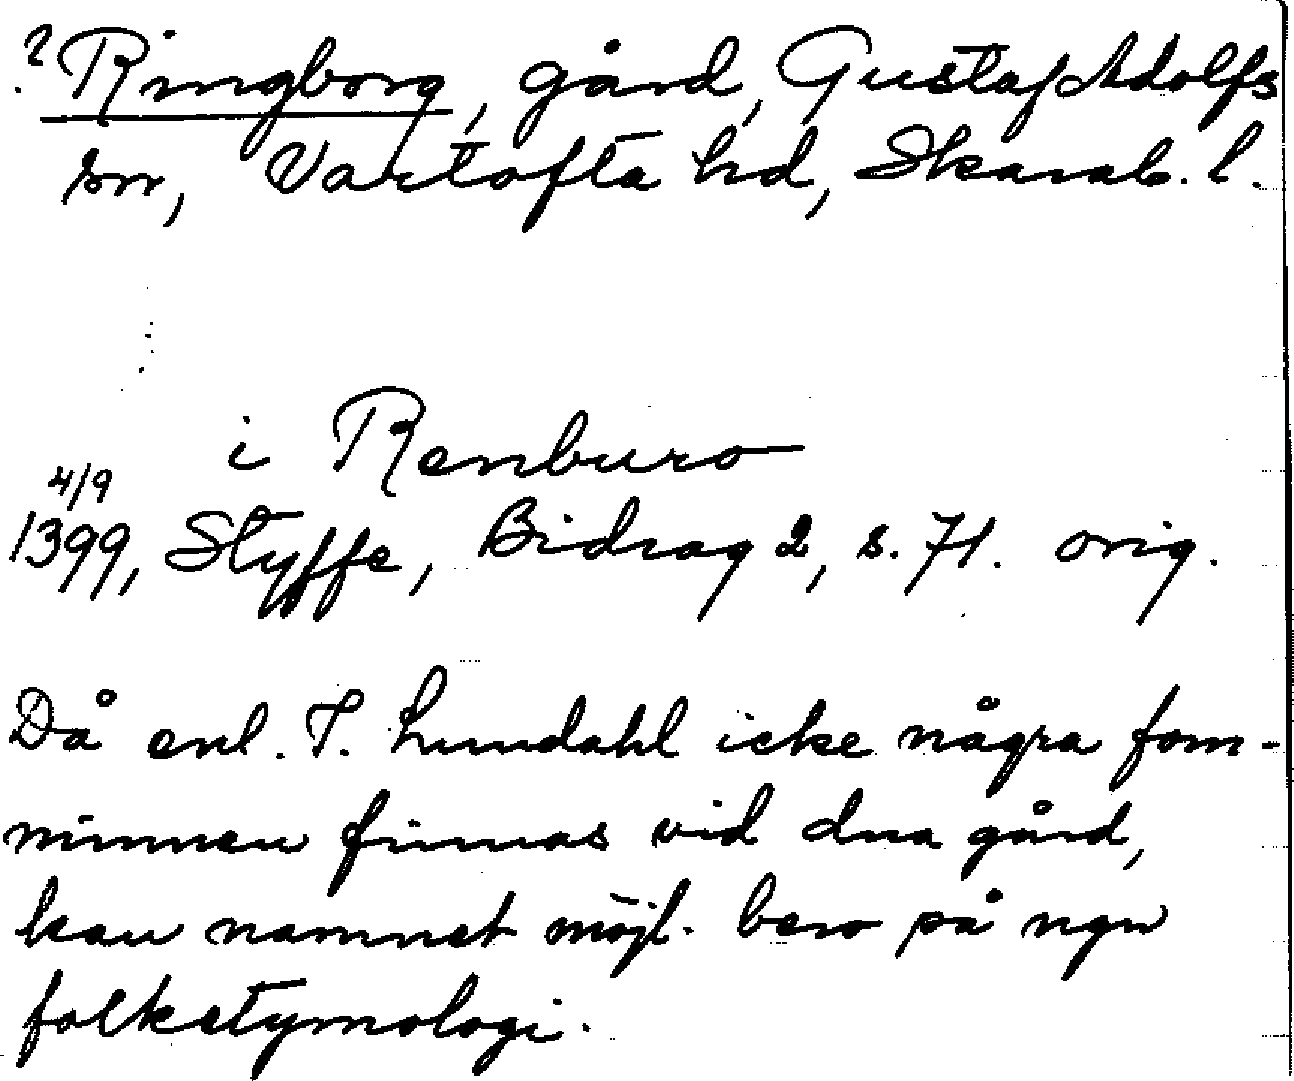 ? Ringborg, gård, Gustaf Adolfs
sn, Vartofta hd, Skarab. l.
i Renburo
4/9
1399, Styffe, Bidrag 2, s. 71. orig.
Då enl. I. Lundahl icke några forn-
minnen finnas vid dna gård,
kan namnet möjl. bero på ngn
folketymologi.